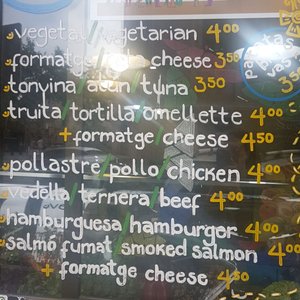 vegetal/vegetarian 4'00
formatge/ cheese 3'50
tonyina/atún/tuna 3'50
truita/tortilla/omellette 4'00
+ formatge/cheese 4'50
pollastre/pollo/chicken 4'00
vedella/ternera/beef 4'00
hamburguesa/hamburger 4'00
salmó fumat/smoked salmon 4'00
+ formatge/cheese 4'50